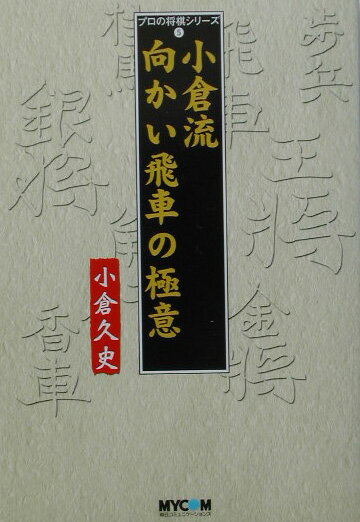 プロの将棋シリーズ
5
小倉流
向かい飛車の極意
小倉久史
歩兵
飛車
桂馬
王将
銀将
角行
金将
香車
MYCOM
毎日コミュニケーションズ